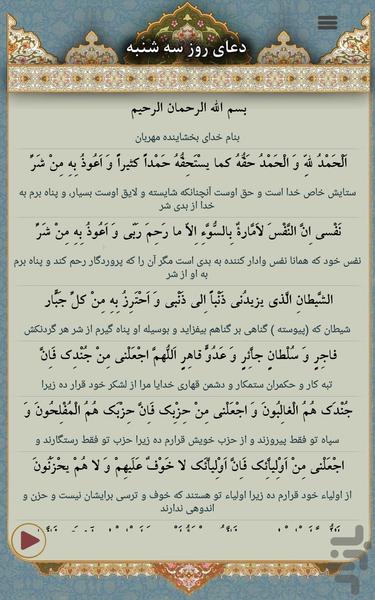 دعای روز سه شنبه
بسم الله الرحمان الرحیم
بنام خدای بخشاینده مهربان
اَلْحَمْدُ للهِ وَ الْحَمْدُ حَقُّهُ کما یسْتَحِقُّهُ حَمْداً کثیراً وَ اَعُوذُ بِهِ مِنْ شَرِّ
ستایش خاص خدا است و حق اوست آنچنانکه شایسته و لایق اوست بسیار، و پناه برم به
خدا از بدی شر
نَفْسی اِنَّ النَّفْسَ لاَمّارَةٌ بِالسُّوَّءِ اِلاّ ما رحِمَ رَبّی وَ اَعُوذُ بِهِ مِنْ شَرِّ
نفس خود که همانا نفس وادار کننده به بدی است مگر آن را که پروردگار رحم کند و پناه برم
به او از شر
الشَّیطانِ الَّذی یزیدُنی ذَنْباً اِلی ذَنْبی وَ اَحْتَرِزُ بِهِ مِنْ کلِّ جَبّارٍ
شیطان که (پیوسته ) گناهی بر گناهم بیفزاید و بوسیله او پناه گیرم از شر هر گردنکش
فاجِرٍ وَ سُلْطانٍ جآئِرٍ وَ عَدُوٍّ قاهِرٍ اَللّهُمَّ اجْعَلْنی مِنْ جُنْدِک فَاِنَّ
تبه کار و حکمران ستمکار و دشمن قهاری خدایا مرا از لشکر خود قرار ده زیرا
جُنْدَک هُمُ الْغالِبُونَ وَ اجْعَلْنی مِنْ حِزْبِک فَاِنَّ حِزْبَک هُمُ الْمُفْلِحُونَ وَ
سپاه تو فقط پیروزند و از حزب خویش قرارم ده زیرا حزب تو فقط رستگارند و
اجْعَلْنی مِنْ اَوْلِیآئِک فَاِنَّ اَوْلِیآئَک لا خَوْفٌ عَلَیهِمْ وَ لا هُمْ یحْزَنُونَ
از اولیاء خود قرارم ده زیرا اولیاء تو هستند که خوف و ترسی برایشان نیست و حزن و
اندوهی ندارند
بازار